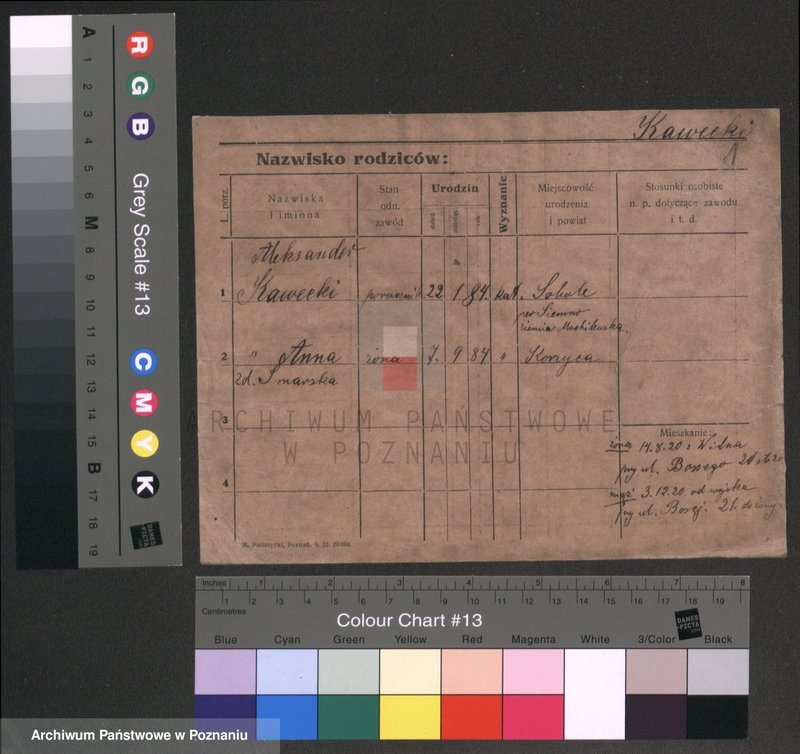 Kawecki
1
Nazwisko rodziców:
L. porz.
Nazwiska
i imiona
Stan
odn.
zawód
Urodzin
dzień
miesiąc
rok
Wyznanie
Miejscowość
urodzenia
i powiat
Stosunki osobiste
n. p. dotyczące zawodu
i t. d.
Aleksander
1 Kawecki porucznik 22 1 84 kat. Sokole
pow Siemno
ziemia Mochilewska.
2 " Anna żona 7. 9 84 "
zd.
3
4
Mieszkanie:
żona 14.8.20 z Wilna
przy ul.
mąż 3.12.20 od wojska
przy ul. 21.
ARCHIWUM PAŃSTWOWE
W POZNANIU
Grey Scale #13
R
G
B
C
M
Y
K
A
1
2
3
4
5
6
M
8
9
10
11
12
13
14
15
B
17
18
19
DANES
-PICTA
.com
Inches 1 2 3 4 5 6 7 8
1 2 3 4 5 6 7 8 9 10 11 12 13 14 15 16 17 18 19
Centimetres
Colour Chart #13
DANES
-PICTA
.com
Blue Cyan Green Yellow Red Magenta White 3/Color Black
Archiwum Państwowe w Poznaniu